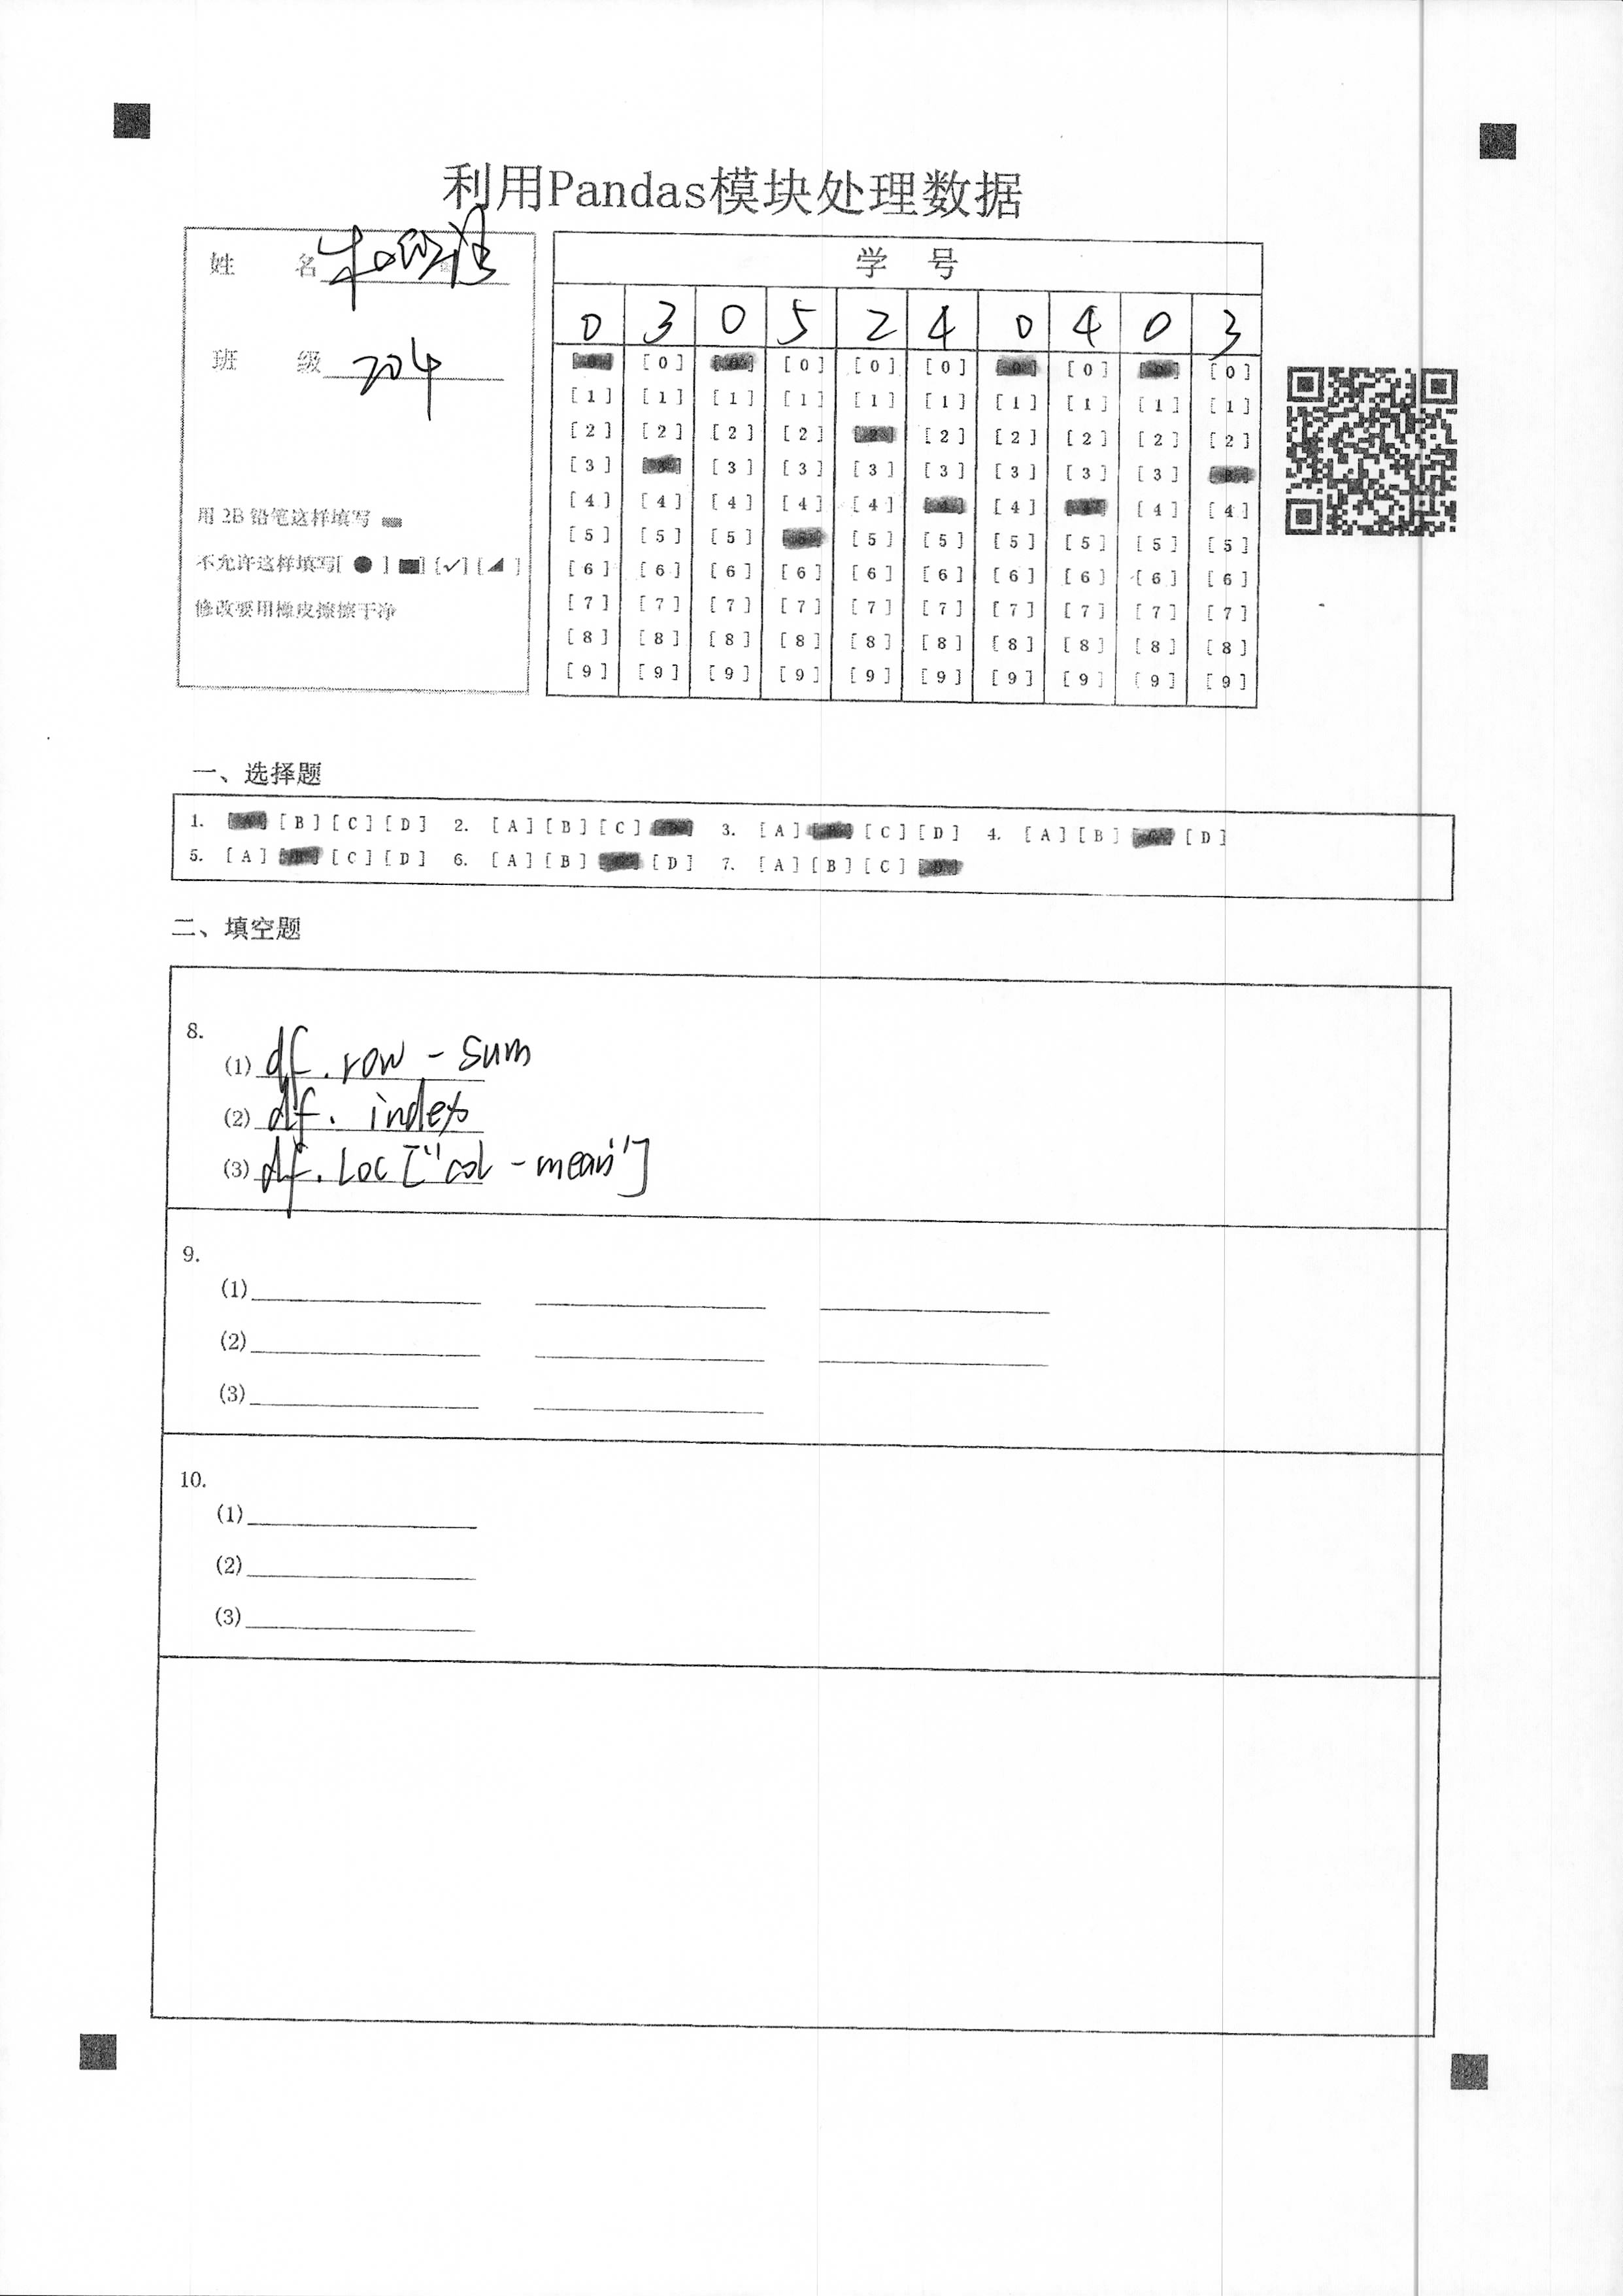 利用Pandas模块处理数据
姓 名
班 级 204
用 2B 铅笔这样填写
不允许这样填写[ ● ] [■] [✓] [◢ ]
修改要用橡皮擦擦干净
学 号
0 3 0 5 2 4 0 4 0 3
[0] [0] [0] [0] [0] [0] [0] [0] [0] [0]
[1] [1] [1] [1] [1] [1] [1] [1] [1] [1]
[2] [2] [2] [2] [2] [2] [2] [2] [2] [2]
[3] [3] [3] [3] [3] [3] [3] [3] [3] [3]
[4] [4] [4] [4] [4] [4] [4] [4] [4] [4]
[5] [5] [5] [5] [5] [5] [5] [5] [5] [5]
[6] [6] [6] [6] [6] [6] [6] [6] [6] [6]
[7] [7] [7] [7] [7] [7] [7] [7] [7] [7]
[8] [8] [8] [8] [8] [8] [8] [8] [8] [8]
[9] [9] [9] [9] [9] [9] [9] [9] [9] [9]
一、选择题
1. [A] [B] [C] [D] 2. [A] [B] [C] [D] 3. [A] [B] [C] [D] 4. [A] [B] [C] [D]
5. [A] [B] [C] [D] 6. [A] [B] [C] [D] 7. [A] [B] [C] [D]
二、填空题
8.
(1) df.row-sum
(2) df. index
(3) df.loc["col-mean"]
9.
(1)
(2)
(3)
10.
(1)
(2)
(3)